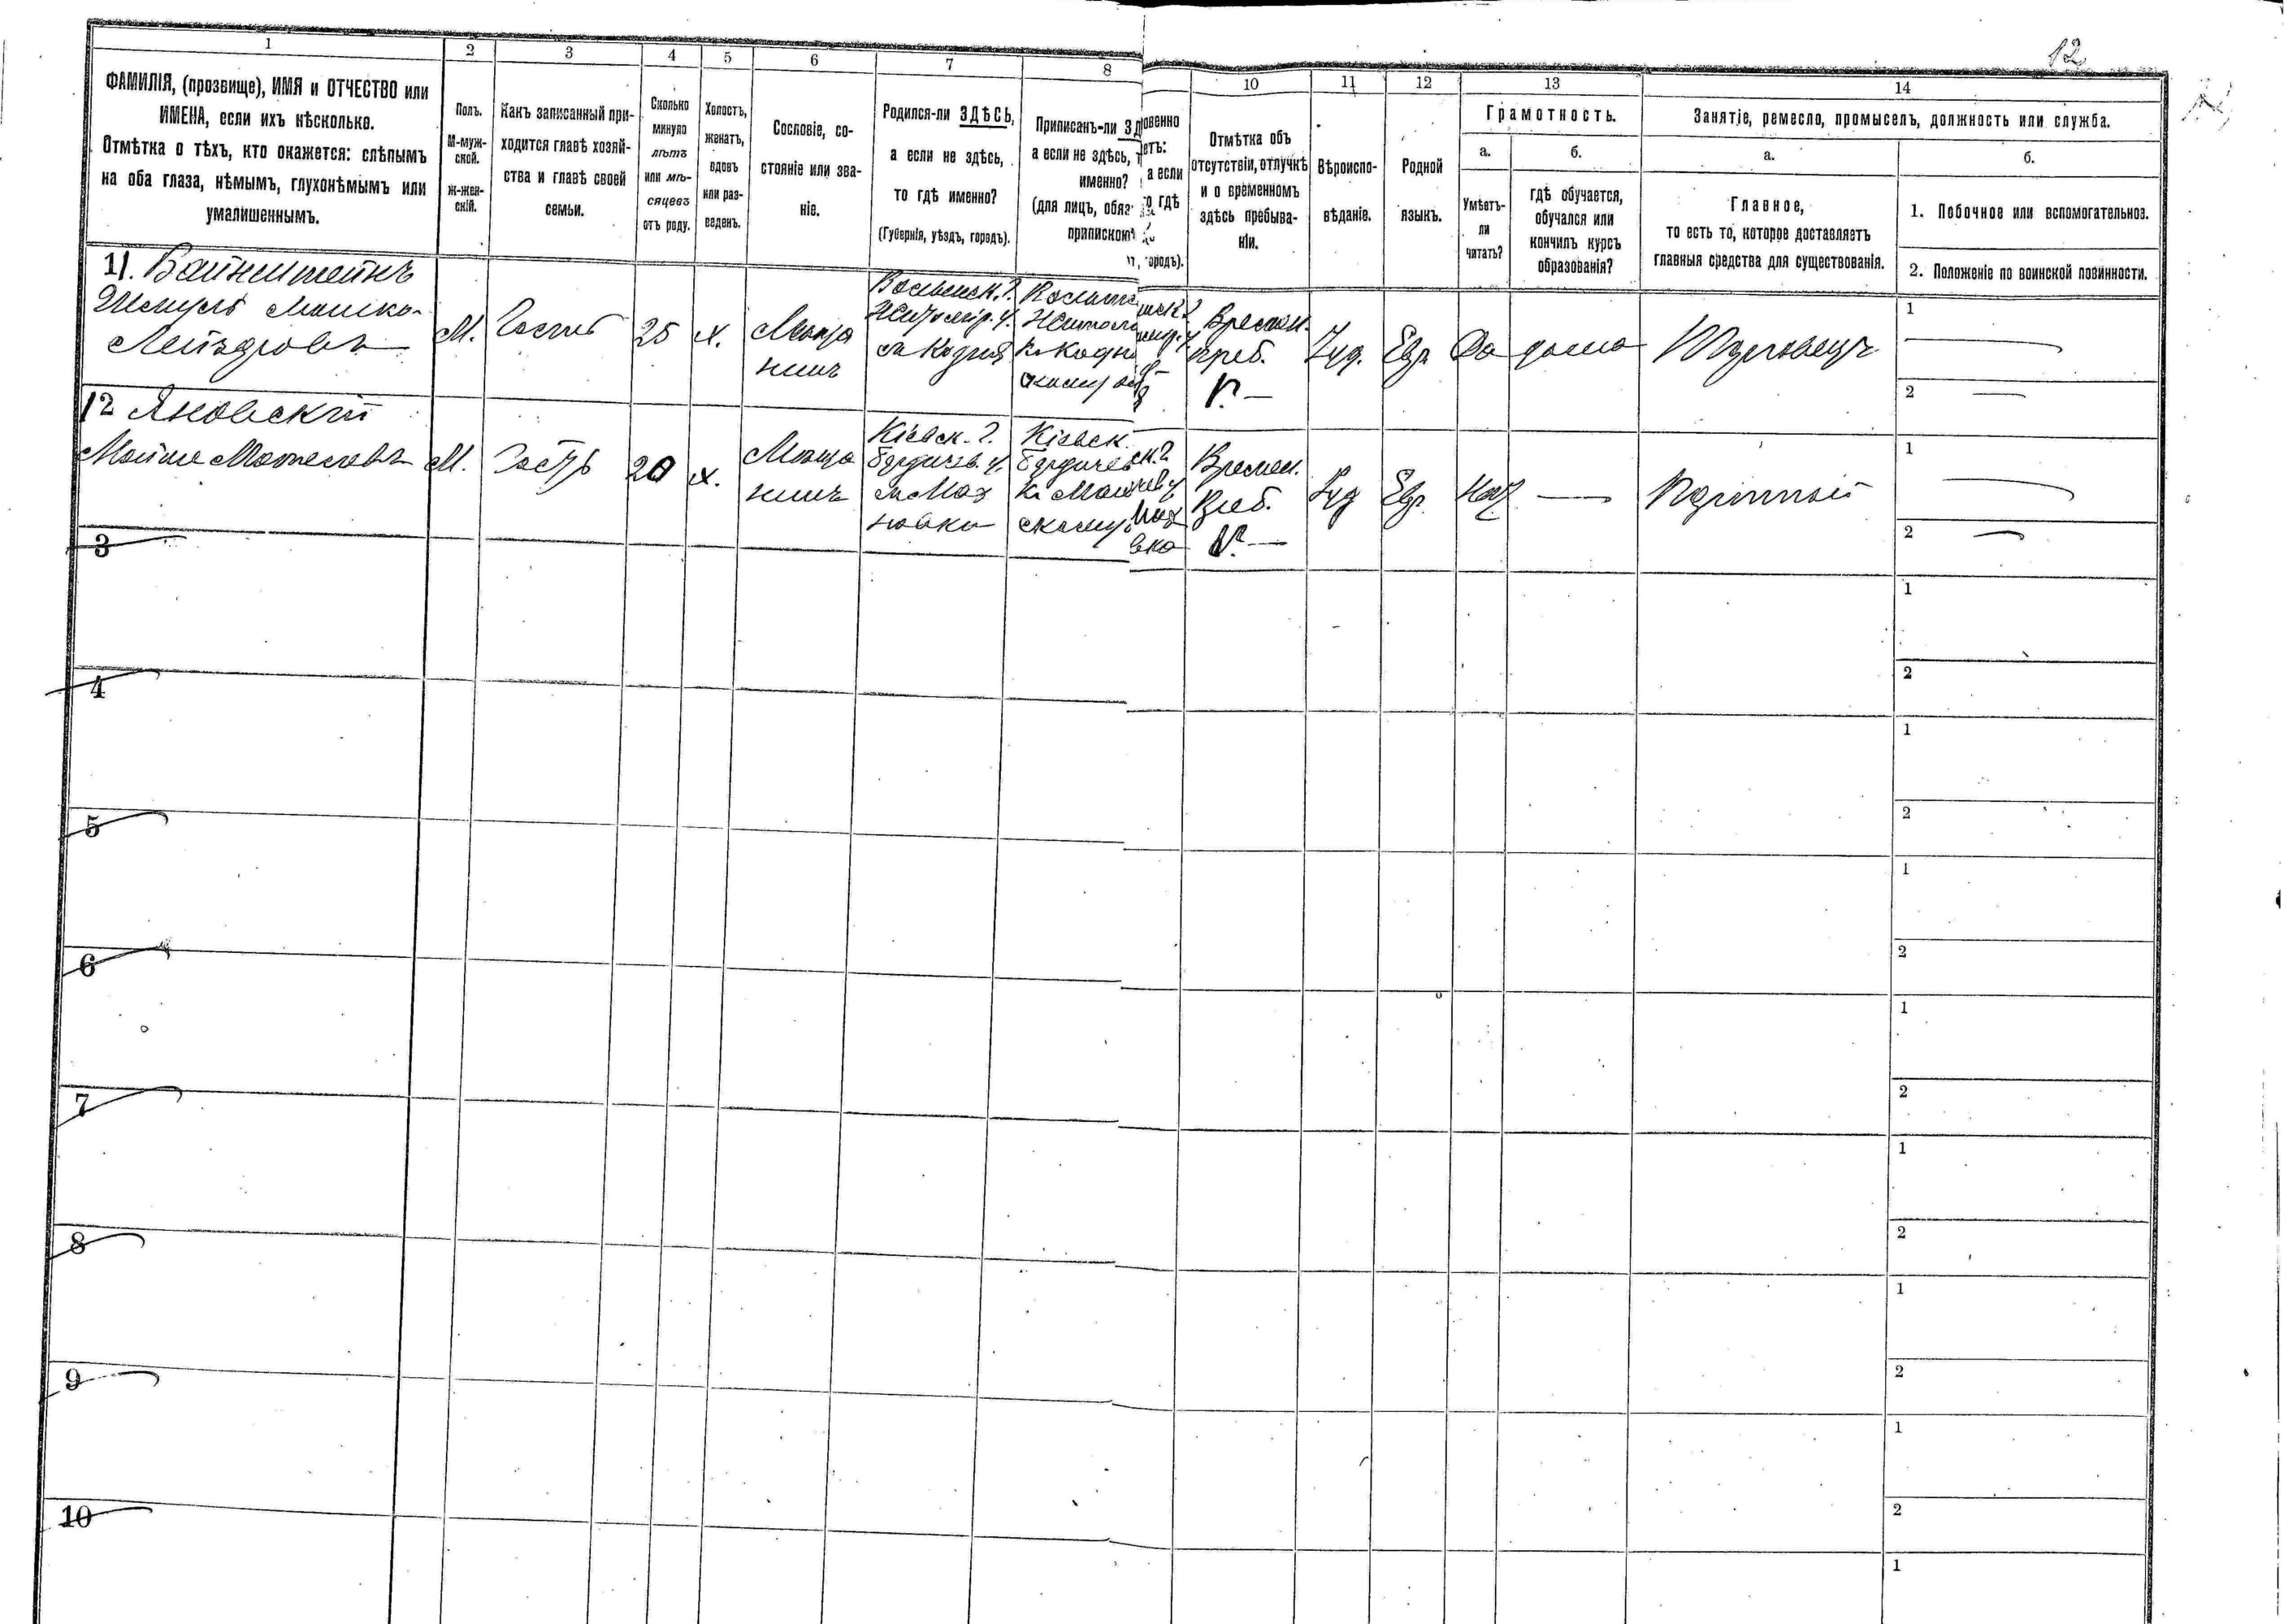 12
1
2
3
4
5
6
7
8
10
11
12
13
14
ФАМИЛІЯ, (прозвище), ИМЯ и ОТЧЕСТВО или
ИМЕНА, если ихъ нѣсколько.
Отмѣтка о тѣхъ, кто окажется: слѣпымъ
на оба глаза, нѣмымъ, глухонѣмымъ или
умалишеннымъ.
Полъ.
М-муж-
ской.
ж-жен-
скій.
Какъ записанный при-
ходится главѣ хозяй-
ства и главѣ своей
семьи.
Сколько
минуло
лѣтъ
или мѣ-
сяцевъ
отъ роду.
Холостъ,
женатъ,
вдовъ
или раз-
веденъ.
Сословіе, со-
стояніе или зва-
ніе.
Родился-ли ЗДѢСЬ,
а если не здѣсь,
то гдѣ именно?
(Губернія, уѣздъ, городъ).
Приписанъ-ли
а если не здѣсь,
именно?
(для лицъ, обяз
припискою
овенно
етъ:
а если
о гдѣ
ородъ).
Отмѣтка объ
отсутствіи, отлучкѣ
и о временномъ
здѣсь пребыва-
ніи.
Вѣроиспо-
вѣданіе.
Родной
языкъ.
Грамотность.
а.
Умѣетъ-
ли
читать?
б.
гдѣ обучается,
обучался или
кончилъ курсъ
образованія?
Занятіе, ремесло, промыселъ, должность или служба.
а.
Главное,
то есть то, которое доставляетъ
главныя средства для существованія.
б.
1. Побочное или вспомогательное.
2. Положеніе по воинской повинности.
11. Вайнштейнъ
Шмуль Мошко-
Лейзеровъ
М.
Гость
25
х.
Мѣща
нинъ
Волынск. г.
Житомір. у.
м Кодня
Времен.
преб.
Іуд.
Евр
Да
дома
Торговецъ
1
2
12 Яновскій
Мойше Мотелевъ
М.
Гость
20
х.
Мѣща
нинъ
Кіевск. г.
Бердичев. у.
м Мах
новки
Кіевск.
Бердичев
Времен.
Преб.
Іуд
Евр.
Нѣт
1
2
3
1
2
4
1
2
5
1
2
6
1
2
7
1
2
8
1
2
9
1
2
10
1